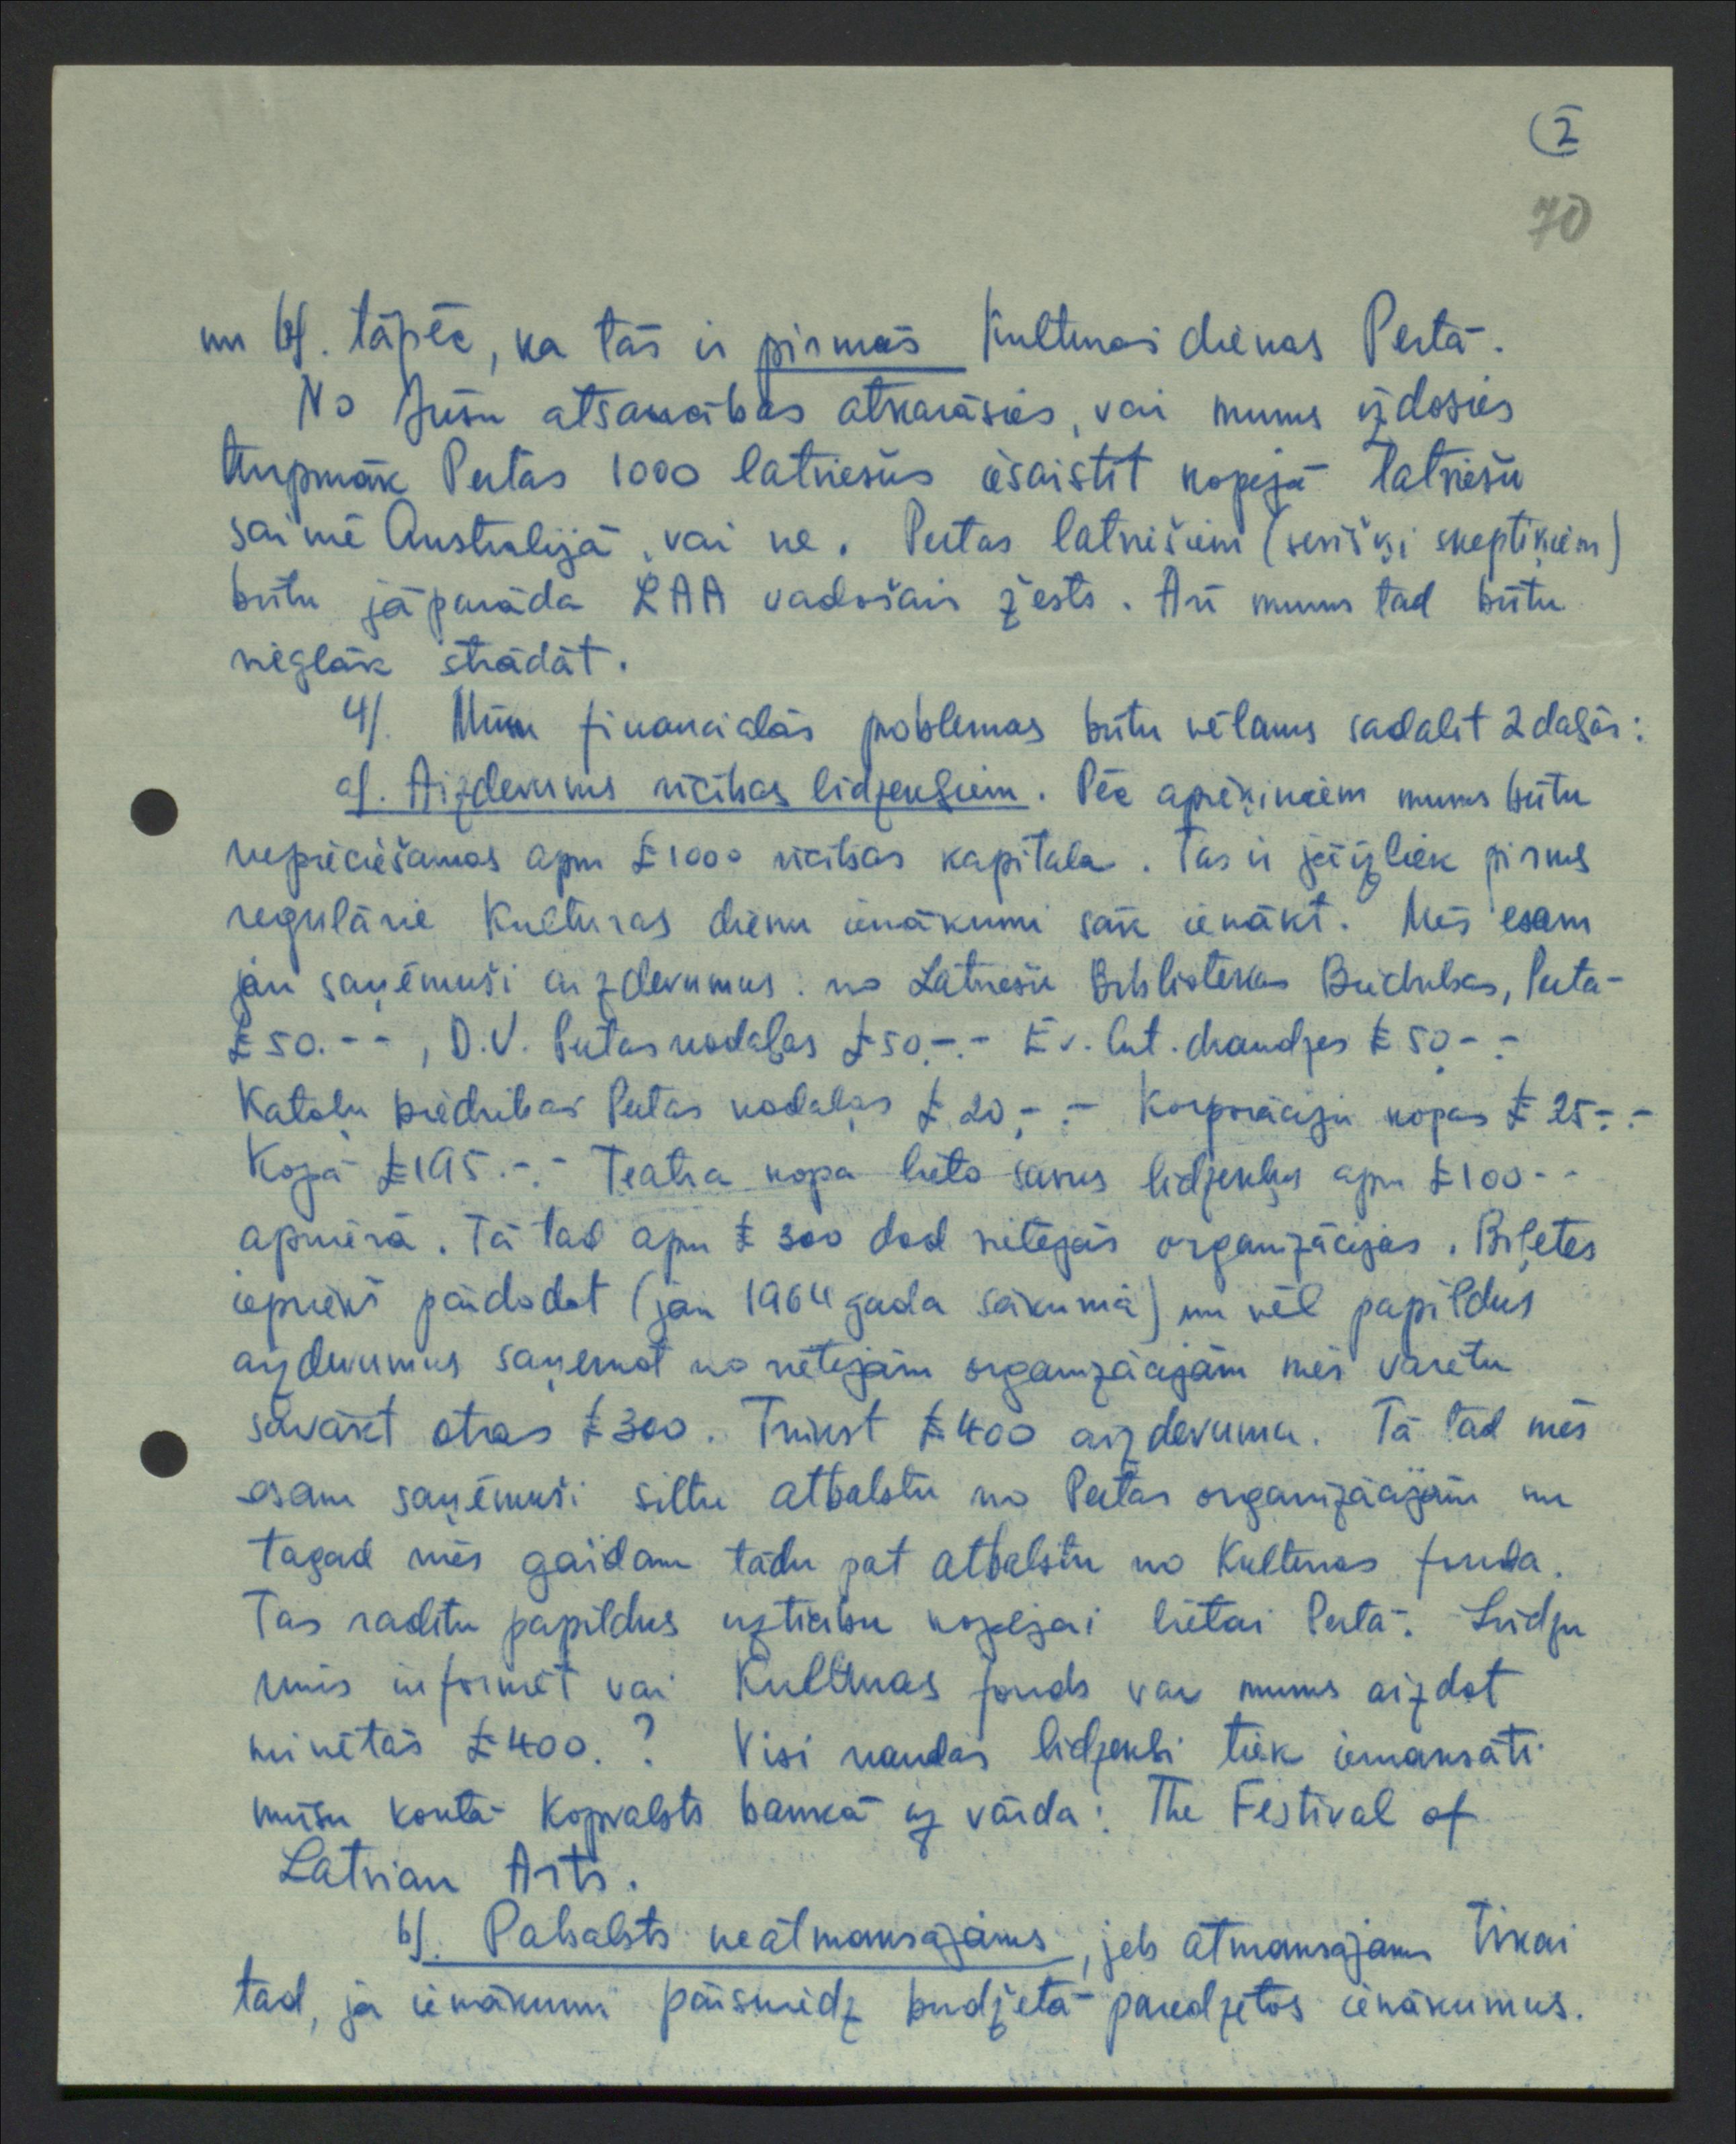 2
70
un b). tāpēc, ka tās ir pirmās Kultūras dienas Pertā.
No Jūsu atsaucības atkarāsies, vai mums izdosies
turpmāk Pertas 1000 latviešus iesaistīt kopējā latviešu
saimē Austrālijā, vai ne. Pertas latviešiem (sevišķi skeptiķiem)
būtu jāparāda LAA vadošais žests. Arī mums tad būtu
vieglāk strādāt.
4). Mūsu financiālās problemas būtu vēlams sadalīt 2 daļās:
a). Aizdevums rīcības līdzekļiem. Pēc aprēķiniem mums būtu
nepieciešamas apm £1000 rīcības kapitala. Tas ir jāizliek pirms
regulārie Kultūras dienu ienākumi sāk ienākt. Mēs esam
jau saņēmuši aizdevumus: no Latviešu Bibliotekas Biedrības, Pertā-
£50.--, D.V. Pertas nodaļas £50.-.- Ev. lut. draudzes £50.-.-
Katoļu biedrības Pertas nodaļas £20.-.- Korporāciju kopas £25.-.-
Kopā £195.-.- Teatra kopa lieto savus līdzekļus apm £100--
apmērā. Tā tad apm £300 dod vietējās organizācijas. Biļetes
iepriekš pārdodot (jau 1964 gada sākumā) un vēl papildus
aizdevumus saņemot no vietējām organizācijām mēs varētu
savākt otras £300. Trūkst £400 aizdevuma. Tā tad mēs
esam saņēmuši siltu atbalstu no Pertas organizācijām un
tagad mēs gaidam tādu pat atbalstu no Kultūras fonda.
Tas radītu papildus uzticību kopējai lietai Pertā. Lūdzu
mūs informēt vai Kultūras fonds var mums aizdot
minētās £400.? Visi naudas līdzekļi tiek iemaksāti
mūsu kontā Kopvalsts bankā uz vārda: The Festival of
Latvian Arts.
b). Pabalsts neatmaksājams, jeb atmaksājams tikai
tad, ja ienākumi pārsniedz budžetā paredzētos ienākumus.